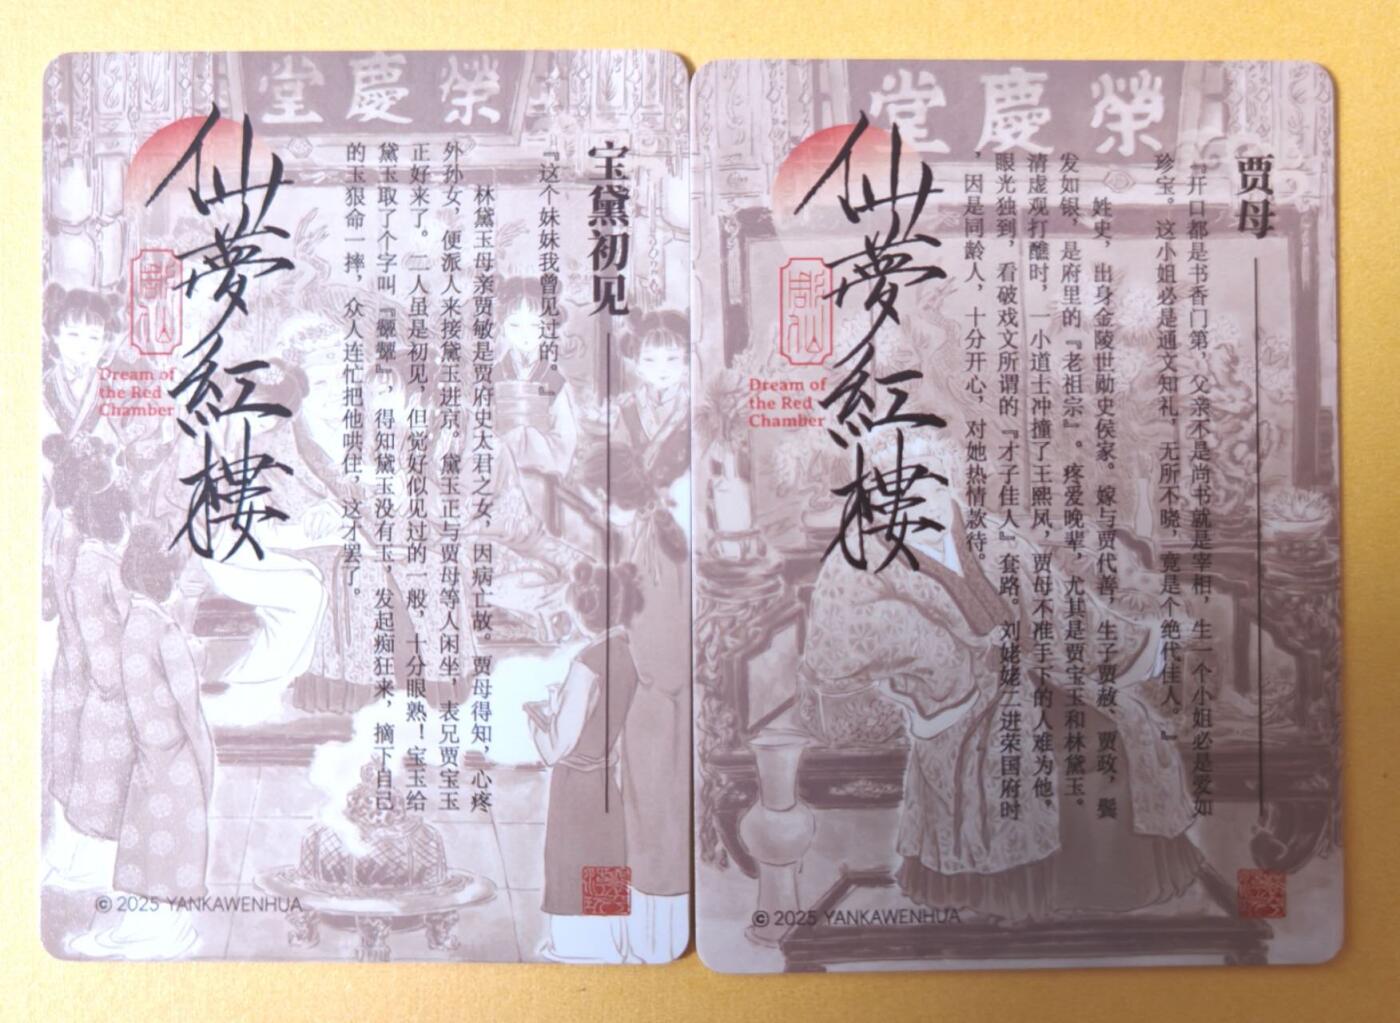 榮慶堂
宝黛初见
『这个妹妹我曾见过的。』
林黛玉母亲贾敏是贾府史太君之女，因病亡故。贾母得知，心疼
外孙女，便派人来接黛玉进京。黛玉正与贾母等人闲坐，表兄贾宝玉
正好来了。二人虽是初见，但觉好似见过的一般，十分眼熟！宝玉给
黛玉取了个字叫『颦颦』，得知黛玉没有玉，发起痴狂来，摘下自己
的玉狠命一摔，众人连忙把他哄住，这才罢了。
仙夢紅樓
Dream of
the Red
Chamber
© 2025 YANKAWENHUA
榮慶堂
贾母
『开口都是书香门第，父亲不是尚书就是宰相，生一个小姐必是爱如
珍宝。这小姐必是通文知礼，无所不晓，竟是个绝代佳人。』
姓史，出身金陵世勋史侯家。嫁与贾代善，生子贾赦、贾政，鬓
发如银，是府里的『老祖宗』。疼爱晚辈，尤其是贾宝玉和林黛玉。
清虚观打醮时，一小道士冲撞了王熙凤，贾母不准手下的人难为他。
眼光独到，看破戏文所谓的『才子佳人』套路。刘姥姥二进荣国府时
，因是同龄人，十分开心，对她热情款待。
仙夢紅樓
Dream of
the Red
Chamber
© 2025 YANKAWENHUA